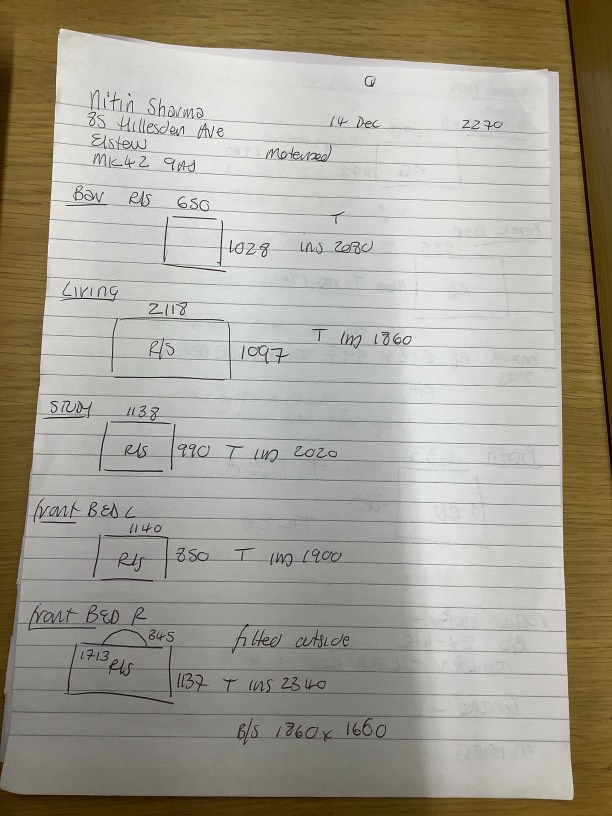 Q
Nitin Sharma
85 Hillesden Ave 14 Dec 2270
Elstow
MK42 9AJ Moterised
R/S 650
T
1028 ins 2080
Living
2118
R/S 1097 T ins 1860
STUDY 1138
R/S 990 T ins 2020
front BED L
1140
R/S 850 T ins 1900
front BED R
345 fitted outside
1713 R/S
1137 T ins 2340
B/S 1860 x 1660